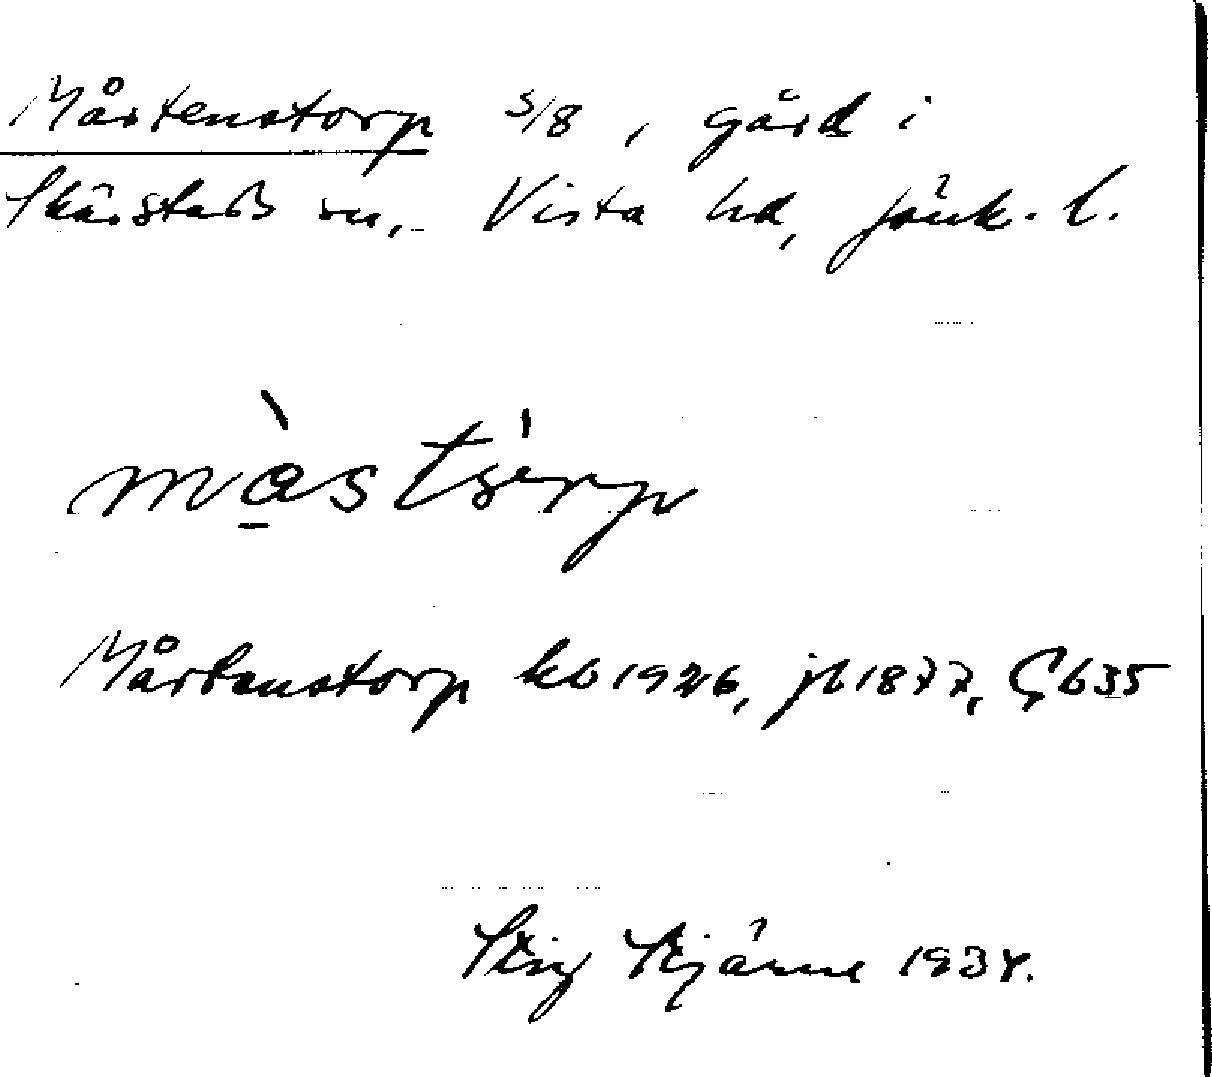 Mårtenstorp 5/8, gård i
Skärstads sn, Vista hd, Jönk. l.
Mårtenstorp kb 1926, jb 1877, Gb35
Stig Stjärne 1934.